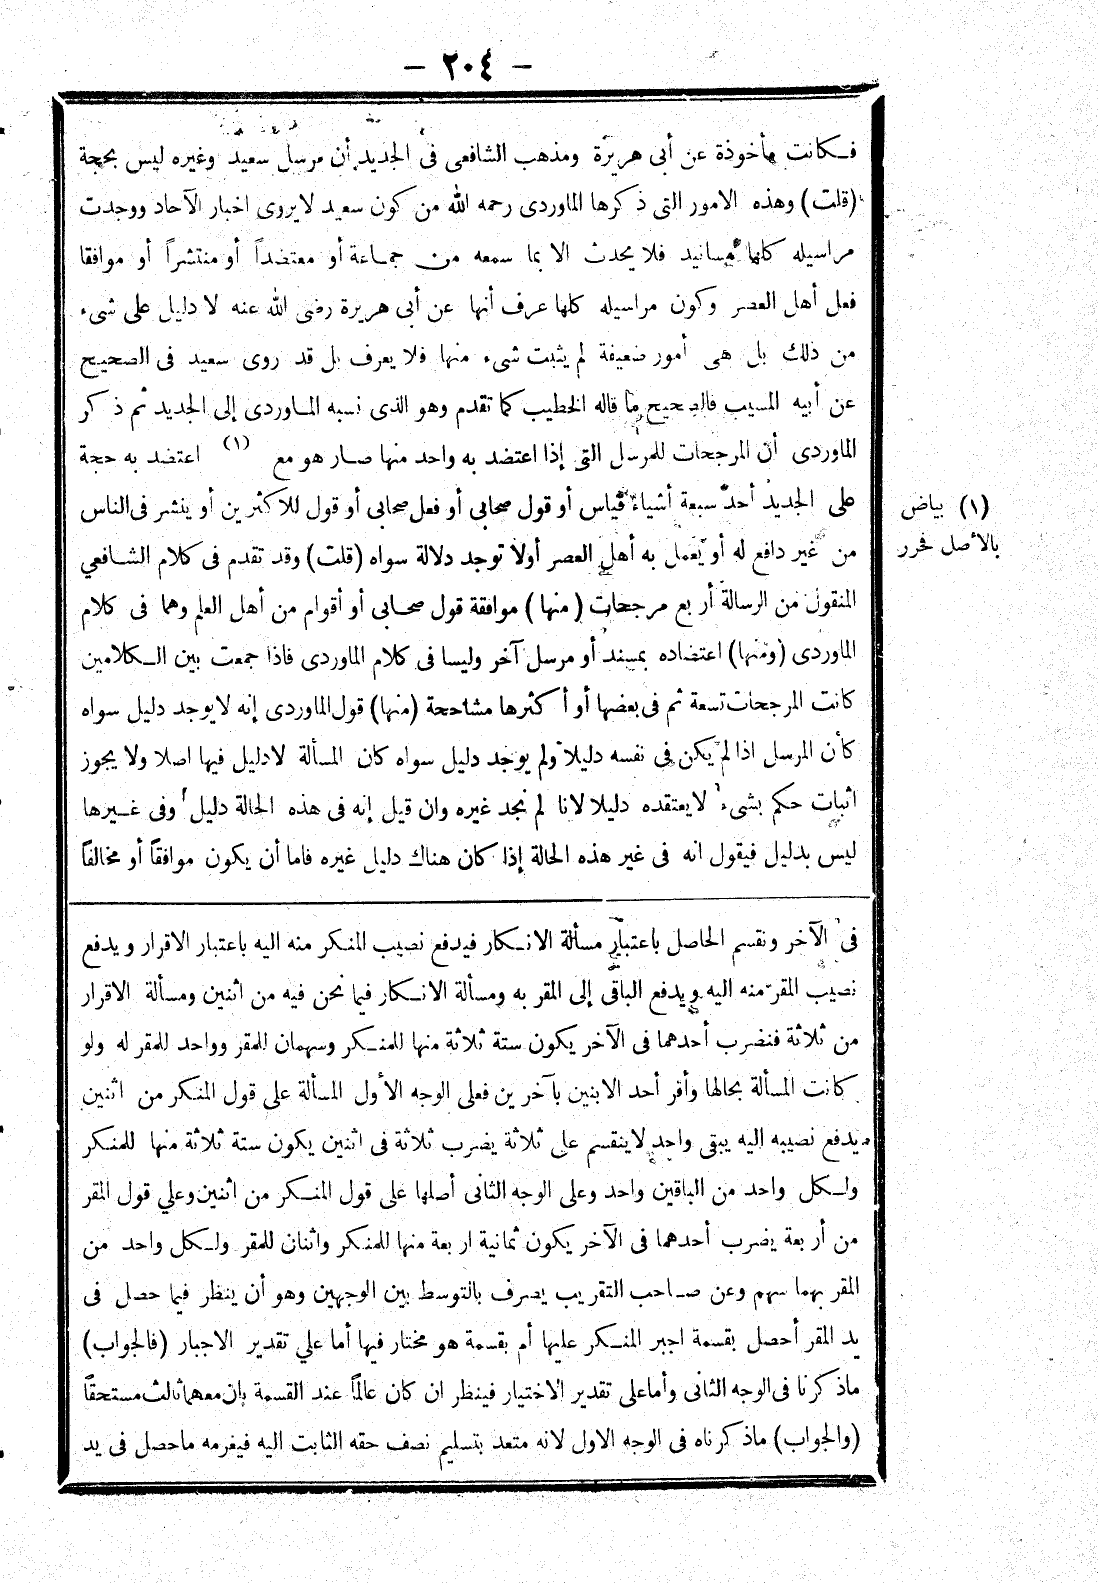 - ٢٠٤ -
فكانت مأخوذة عن أبى هريرة ومذهب الشافعى فى الجديد أن مرسل سعيد وغيره ليس بحجة
(قلت) وهذه الامور التى ذكرها الماوردى رحمه الله من كون سعيد لايروى اخبار الآحاد ووجدت
مراسيله كلها مسانيد فلا يحدث الا بما سمعه من جماعة أو معتضداً أو منتشراً أو موافقا
فعل أهل العصر وكون مراسيله كلها عرف أنها عن أبى هريرة رضى الله عنه لا دليل على شىء
من ذلك بل هى أمور ضعيفة لم يثبت شىء منها فلا يعرف بل قد روى سعيد فى الصحيح
عن أبيه المسيب فالصحيح ما قاله الخطيب كما تقدم وهو الذى نسبه الماوردى إلى الجديد ثم ذكر
الماوردى أن المرجحات للمرسل التى إذا اعتضد به واحد منها صار هو مع (١) اعتضد به حجة
على الجديد أحد سبعة أشياء قياس أو قول صحابى أو فعل صحابى أو قول للاكثرين أو ينشر فى الناس
من غير دافع له أو يعمل به أهل العصر أولا توجد دلالة سواه (قلت) وقد تقدم فى كلام الشافعي
المنقول من الرسالة أربع مرجحات (منها) موافقة قول صحابى أو أقوام من أهل العلم وهما فى كلام
الماوردى (ومنها) اعتضاده بمسند أو مرسل آخر وليسا فى كلام الماوردى فاذا جمعت بين الكلامين
كانت المرجحات تسعة ثم فى بعضها أو أكثرها مشاححة (منها) قول الماوردى إنه لايوجد دليل سواه
كأن المرسل اذا لم يكن فى نفسه دليلا ولم يوجد دليل سواه كان المسألة لادليل فيها اصلا ولا يجوز
اثبات حكم بشىء لايعتقده دليلا لانا لم نجد غيره وان قيل إنه فى هذه الحالة دليل وفى غيرها
ليس بدليل فيقول انه فى غير هذه الحالة إذا كان هناك دليل غيره فاما أن يكون موافقاً أو مخالفاً
(١) بياض
بالأصل فحرر
فى الآخر ونقسم الحاصل باعتبار مسألة الانكار فيدفع نصيب المنكر منه اليه باعتبار الاقرار ويدفع
نصيب المقر منه اليه ويدفع الباقى إلى المقر به ومسألة الانكار فيما نحن فيه من اثنين ومسألة الاقرار
من ثلاثة فنضرب أحدهما فى الآخر يكون ستة ثلاثة منها للمنكر وسهمان للمقر وواحد للمقر له ولو
كانت المسألة بحالها وأقر أحد الابنين بآخرين فعلى الوجه الأول المسألة على قول المنكر من اثنين
يدفع نصيبه اليه يبقى واحد لاينقسم على ثلاثة يضرب ثلاثة فى اثنين يكون ستة ثلاثة منها للمنكر
ولكل واحد من الباقين واحد وعلى الوجه الثانى أصلها على قول المنكر من اثنين وعلي قول المقر
من أربعة يضرب أحدهما فى الآخر يكون ثمانية اربعة منها للمنكر واثنان للمقر ولكل واحد من
المقر بهما سهم وعن صاحب التقريب يصرف بالتوسط بين الوجهين وهو أن ينظر فيما حصل فى
يد المقر أحصل بقسمة اجبر المنكر عليها أم بقسمة هو مختار فيها أما علي تقدير الاجبار (فالجواب)
ماذكرنا فى الوجه الثانى وأماعلى تقدير الاختيار فينظر ان كان عالماً عند القسمة بان معهما ثالث مستحقاً
(والجواب) ماذكرناه فى الوجه الاول لانه متعد بتسليم نصف حقه الثابت اليه فيغرمه ماحصل فى يد